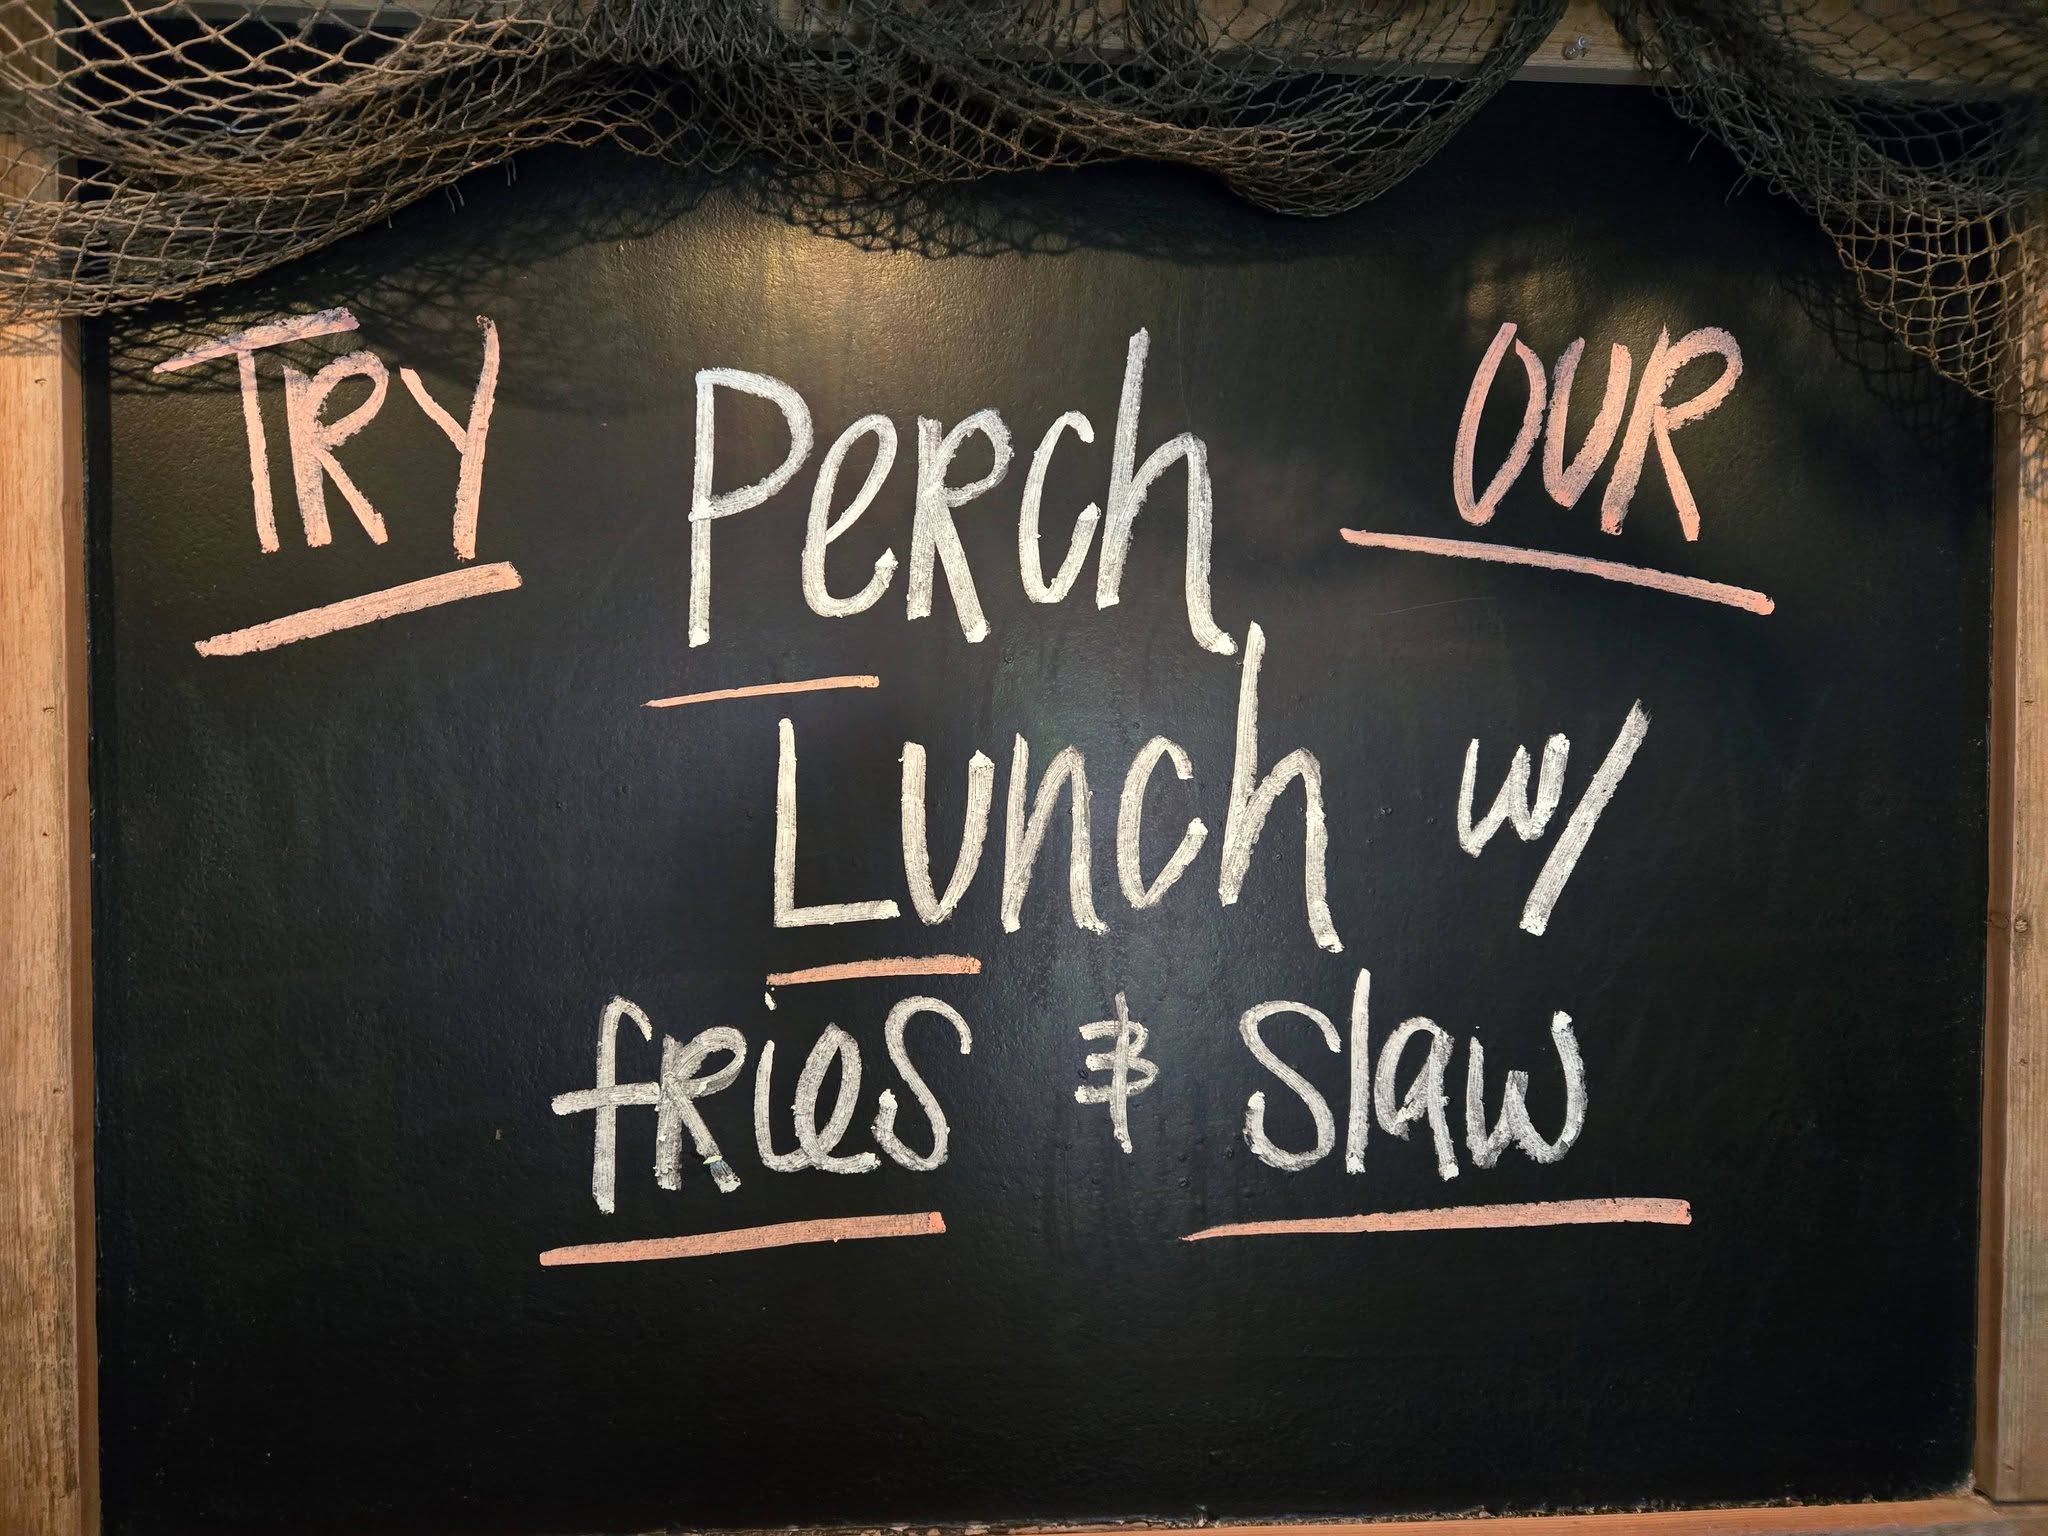 TRY Perch OUR
Lunch w/
fries & Slaw